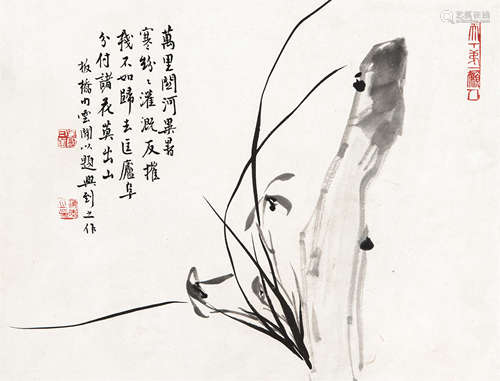 萬里関河異暑
寒紛〻灌溉反摧
殘不如歸去匡廬阜
分付諸花莫出山
板橋句雲閒以題興到之作